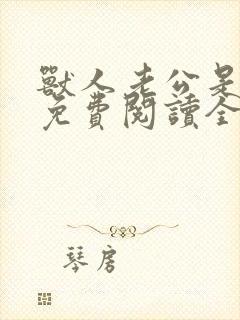 獸人老公是
免費閱讀全
琴房